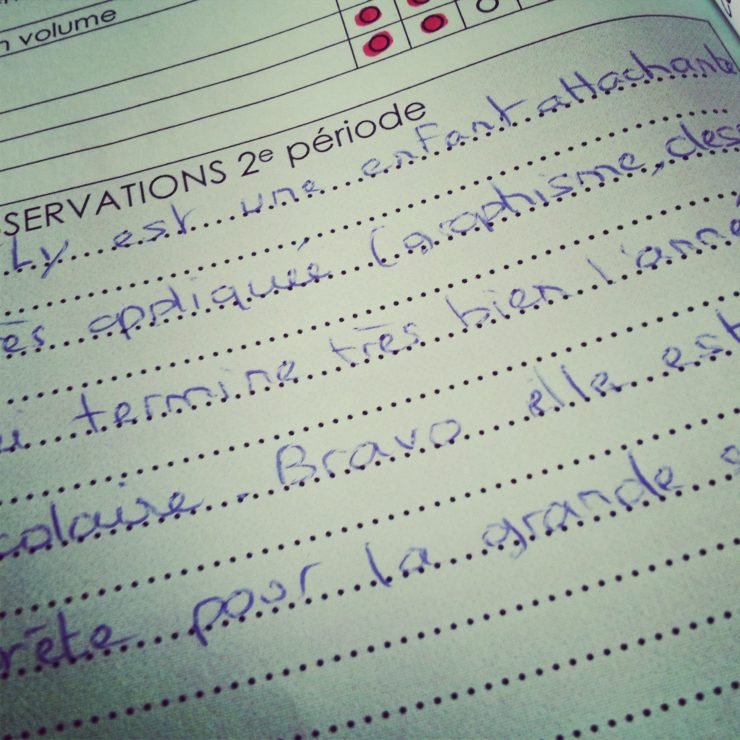 n volume
SERVATIONS 2e période
Ly est une enfant attachante
ès appliquée (graphisme, des
i termine très bien l'anné
colaire. Bravo elle est
rête pour la grande s